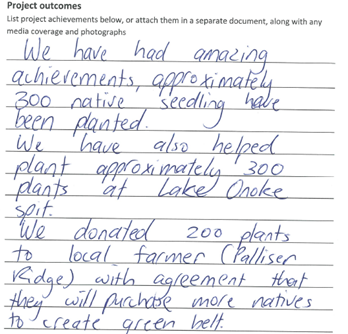 Project outcomes
List project achievements below, or attach them in a separate document, along with any
media coverage and photographs
We have had amazing
achievements, approximately
300 native seedling have
been planted.
We have also helped
plant approximately 300
plants at Lake Onoke
spit.
We donated 200 plants
to local farmer (Palliser
Ridge) with agreement that
they will purchase more natives
to create green belt.